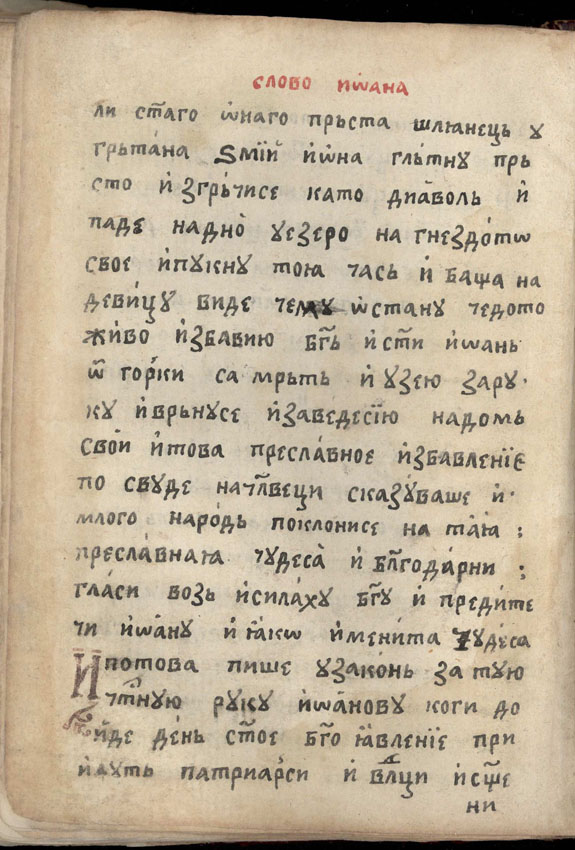 слово иѡана
ли ст҃аго ѡ҆наго прьста шлюнець у
грьта́на ѕмі́й и҆ѡна глътну прь
сто и҆ згрь́чисе като диа́воль и҆
паде на дно̀ у езеро на гнездо́тѡ
свое и҆ пукну тоꙗ часъ и҆ баща на
деви́цу виде чему ѡ҆стану чедото
жи́во и҆збавию бг҃ь и҆ ст҃и и҆ѡань
ѿ го́рки са мрьть и҆ узею за ру
ку и҆ врьнусе и҆ заведесїю на домь
сво́и и҆ това пресла́вное и҆збавленїе
по свуде на чл҃веци сказу́ваше и҆
млого наро́дь поклонисе на та́ꙗ :
пресла́внаꙗ чудеса̀ и҆ бл҃года́рни :
гласи возь и҆сила́ху бг҃у и҆ предите
чи и҆ѡа́ну и҆ ꙗ҆кѡ и҆мени́та чу́деса
И҆ потова пише у зако́нь за тую
чт҃ную руку и҆ѡа́нову коги до
и҆́де де́нь ст҃ое бг҃о ꙗ҆вленїе при
и҆дуть патриарси и҆ влдци и҆ сщ҃е
ни